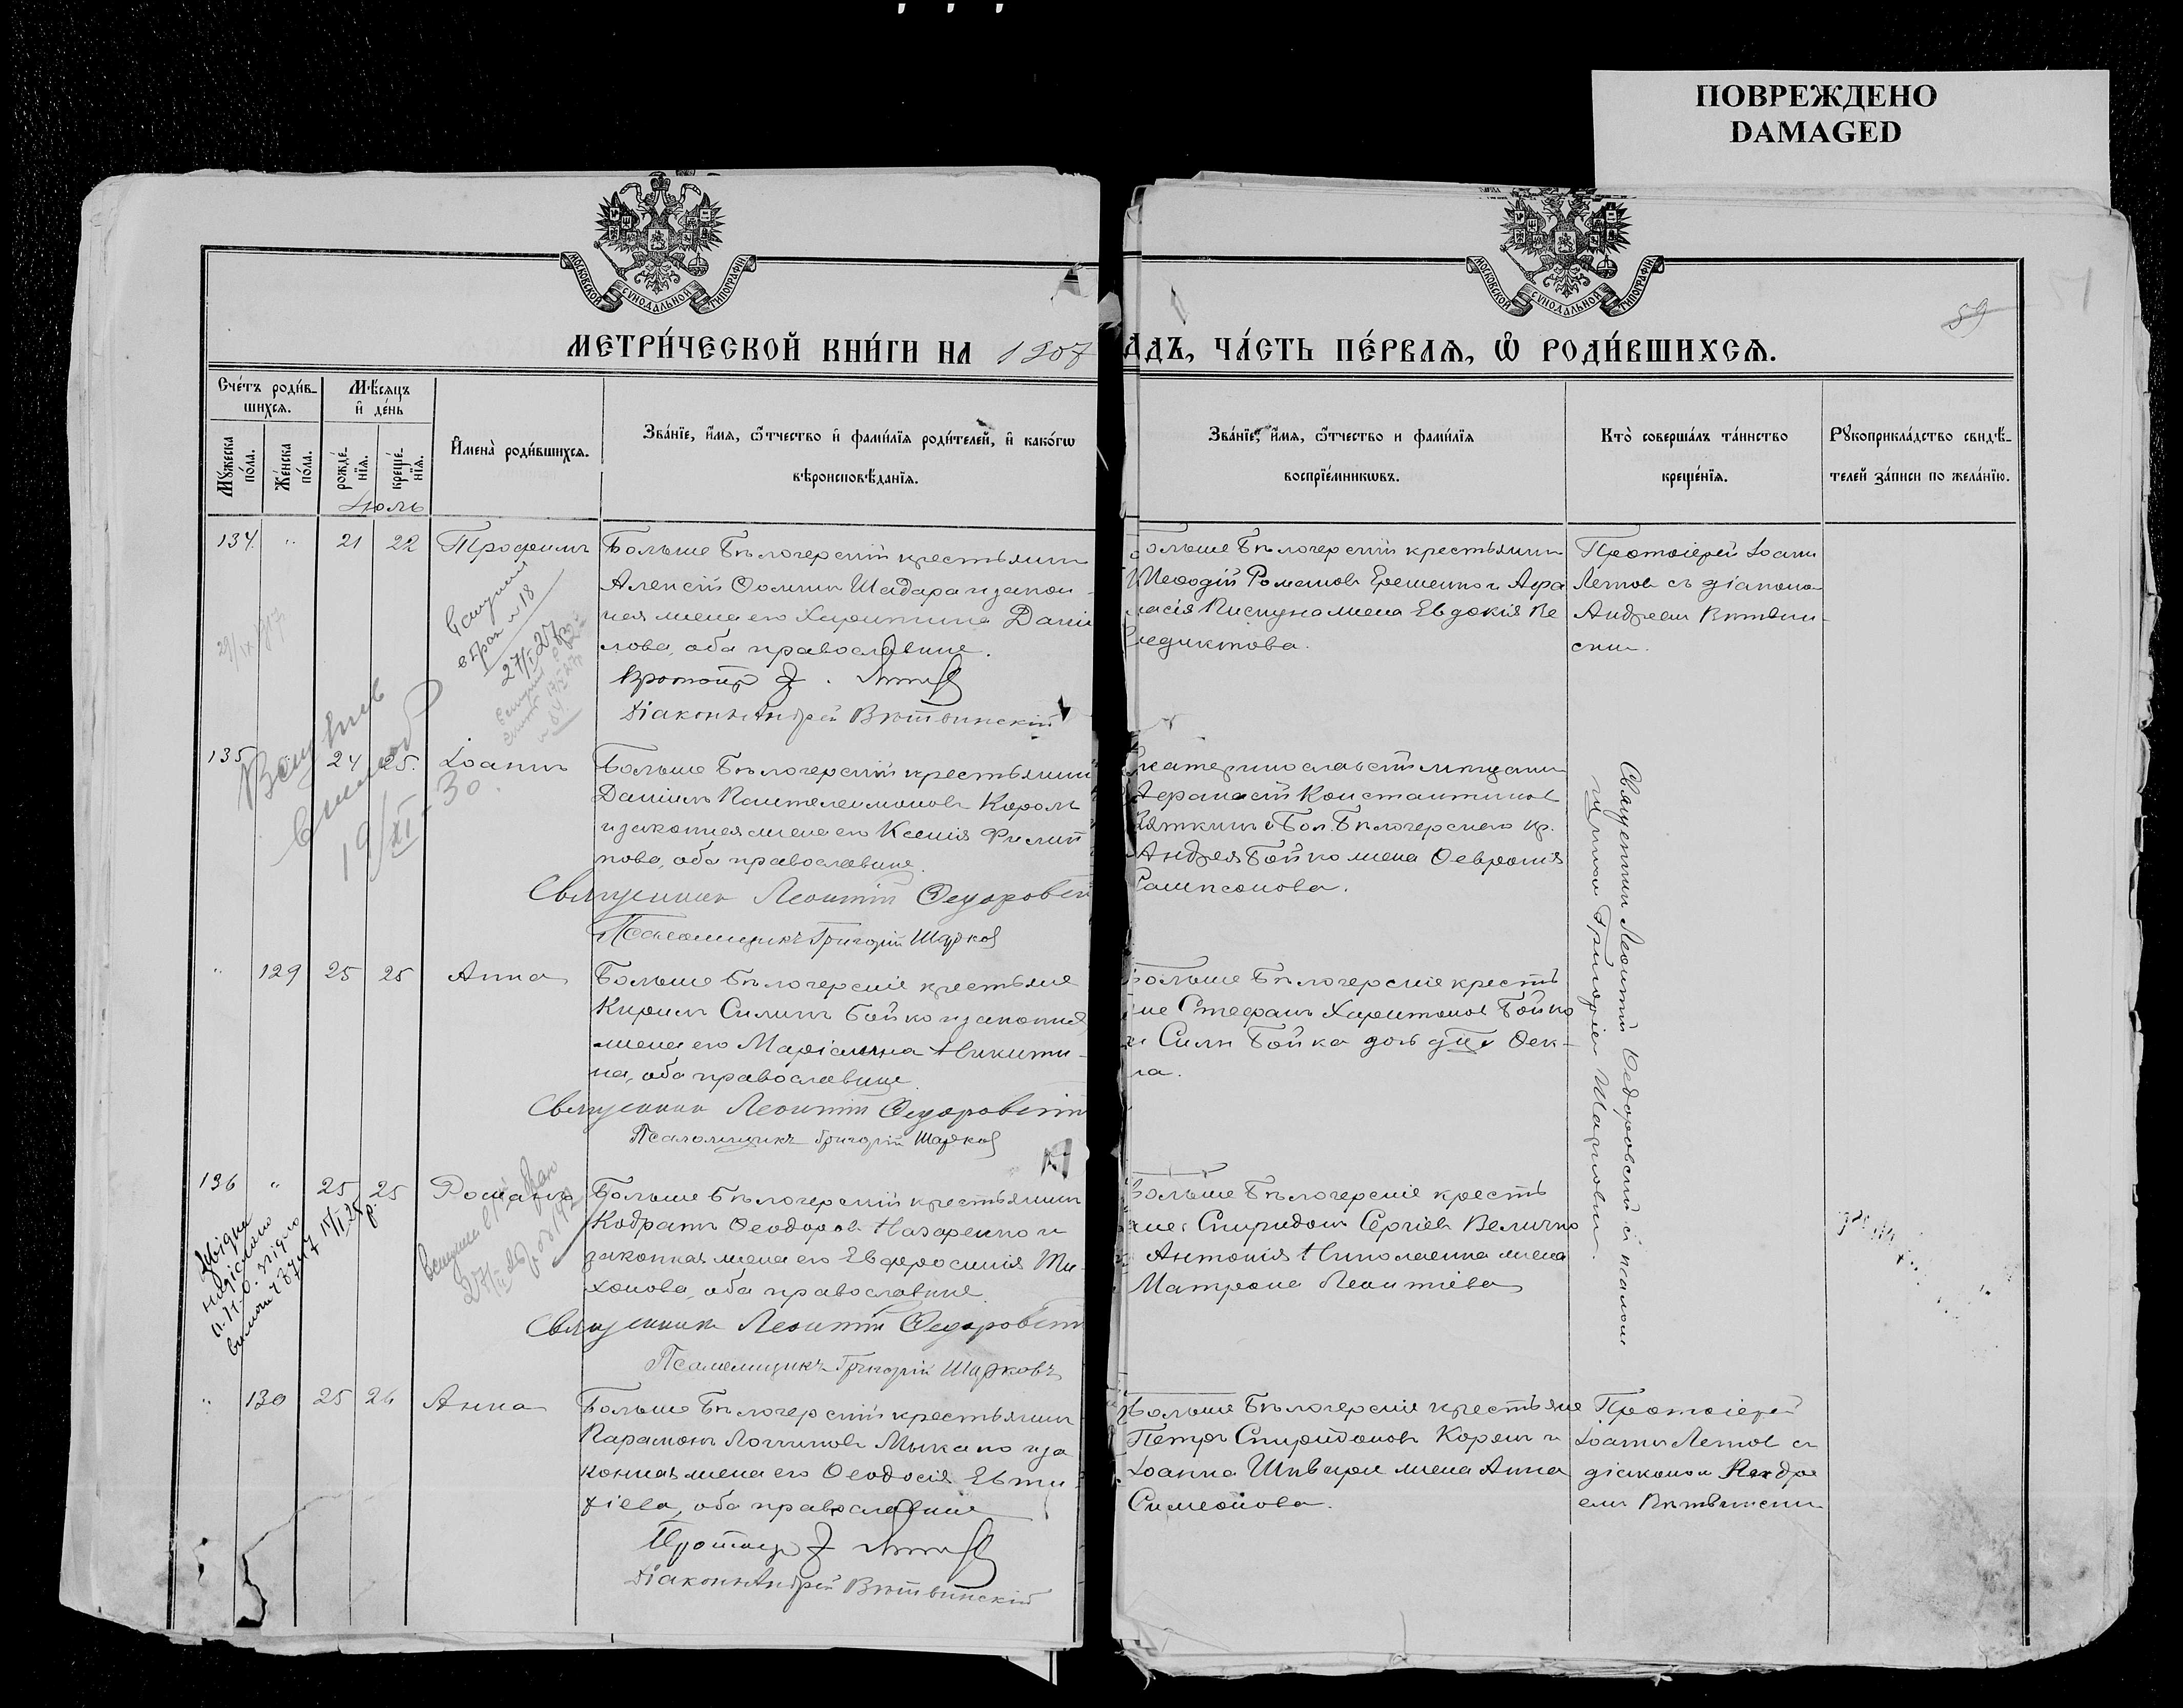 ПОВРЕЖДЕНО
DAMAGED
МОСКОВСКОЙ СѴНОДАЛЬНОЙ ТИПОГРАФІИ
МОСКОВСКОЙ СѴНОДАЛЬНОЙ ТИПОГРАФІИ
59
МЕТРИ́ЧЕСКОЙ КНИ́ГИ НА 1907
АДЪ, ЧА́СТЬ ПЕ́РВАѦ, Ѽ РОДИ́ВШИХСѦ.
Сче́тъ роди́в-
шихсѧ.
Мꙋ́жеска по́ла.
Же́нска по́ла.
Мѣ́сѧцъ
и҆ де́нь
рожде́-
нїѧ.
креще́-
нїѧ.
И҆мена̀ роди́вшихсѧ.
Зва́нїе, и҆́мѧ, ѻ҆́тчество и҆ фами́лїѧ роди́телей, и҆ како́гѡ
вѣроисповѣ́данїѧ.
Зва́нїе, и҆́мѧ, ѻ҆́тчество и фами́лїѧ
воспрїе́мникѡвъ.
Кто̀ соверша́лъ та́инство
креще́нїѧ.
Рꙋкоприкла́дство свидѣ́-
телей за́писи по жела́нїю.
Іюль
134. " 21 22 Трофимъ
Больше Бѣлозерскій крестьянинъ
Алексій Ѳоминъ Шадара и закон-
ная жена его Харитина Дани
лова, оба православные.
Діаконъ Андрей Витвинскій
ольше Бѣлозерскій крестьянинъ
Меѳодій Романовъ Ерешенко и Аѳа
насія Пискуна жена Евдокія Ве
недиктова.
Протоіерей Іоаннъ
Летовъ съ діакономъ
Андреемъ Витвин-
скимъ.
27/I 27
135 24 25. Іоаннъ
19/XI-30.
Больше Бѣлозерскій крестьянинъ
Даніилъ Пантелеимоновъ Король
и законная жена его Ксенія Филип
пова, оба православные.
Священникъ Леонтій Ѳедоровскій
Псаломщикъ Григорій Шарковъ
катеринославскій мѣщанинъ
Аѳанасій Константиновъ
Вяткинъ и Бол. Бѣлозерскаго кр.
Андрея Бойко жена Ѳевронія
Сампсонова.
Священникъ Леонтій Ѳедоровскій съ псаломщ
щикомъ Григоріемъ Шарковымъ.
" 129 25 25 Анна
Больше Бѣлозерскіе крестьяне
Кирилъ Силинъ Бойко и законная
жена его Маріамна Никити-
на, оба православные.
Священникъ Леонтій Ѳедоровскій
Псаломщикъ Григорій Шарковъ
ольше Бѣлозерскіе кресть
не Стефанъ Харитоновъ Бойко
и Силы Бойка дочь дца Ѳек-
ла.
136 " 25 25 Романъ
Больше Бѣлозерскій крестьянинъ
Кодратъ Ѳеодоровъ Назаренко и
законная жена его Евфросинія Ти-
хонова, оба православные.
Священникъ Леонтій Ѳедоровскій
Псаломщикъ Григорій Шарковъ
ольше Бѣлозерскіе кресть
яне: Спиридонъ Сергіевъ Величко
Антонія Николаенка жена
Матрона Леонтіева
" 130 25 26 Анна
Больше Бѣлозерскій крестьянинъ
Парамонъ Логиновъ Мыкало и за
конная жена его Ѳеодосія Евти-
хіева, оба православные
Діаконъ Андрей Витвинскій
Больше Бѣлозерскіе крестьяне
Петръ Спиридоновъ Корянъ и
Іоанна Шныря жена Анна
Симеонова.
Протоіерей
Іоаннъ Летовъ съ
діакономъ Андре
емъ Витвинскимъ